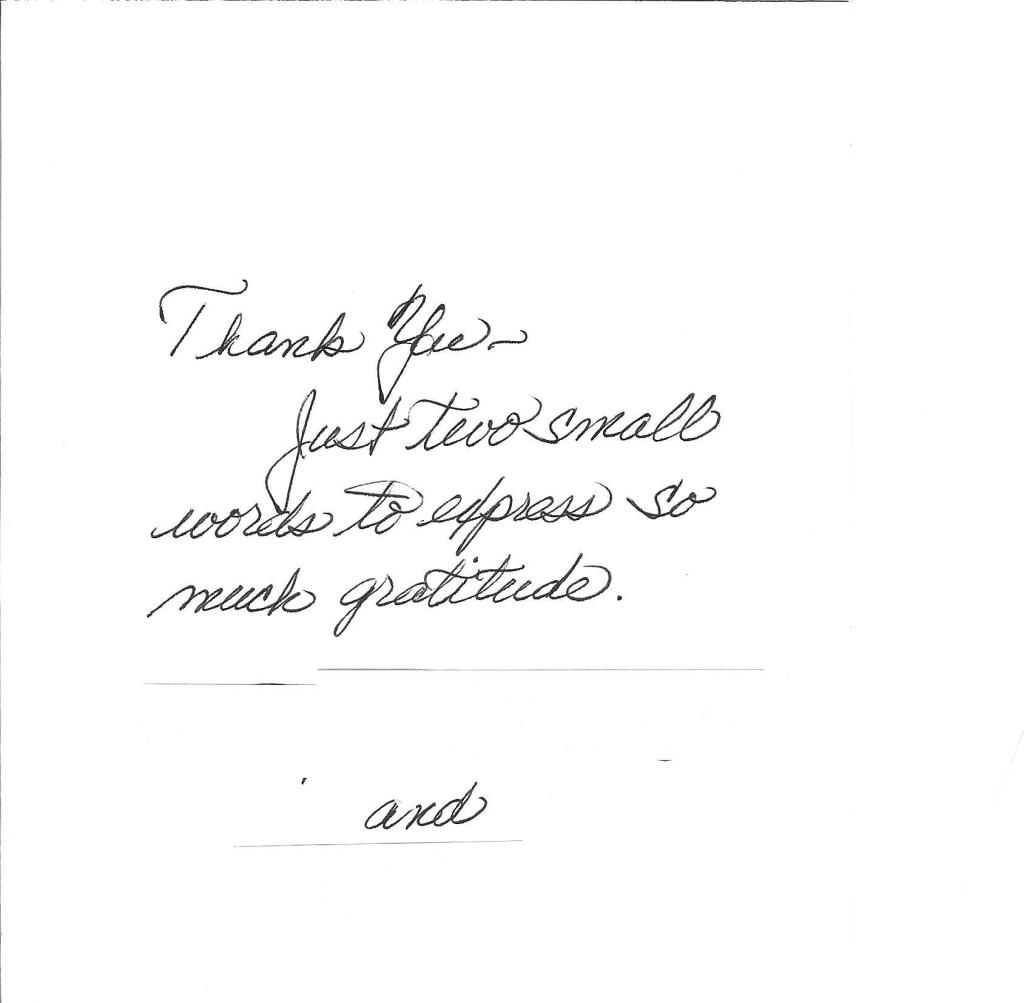 Thank You ~
Just two small
words to express so
much gratitude.
and